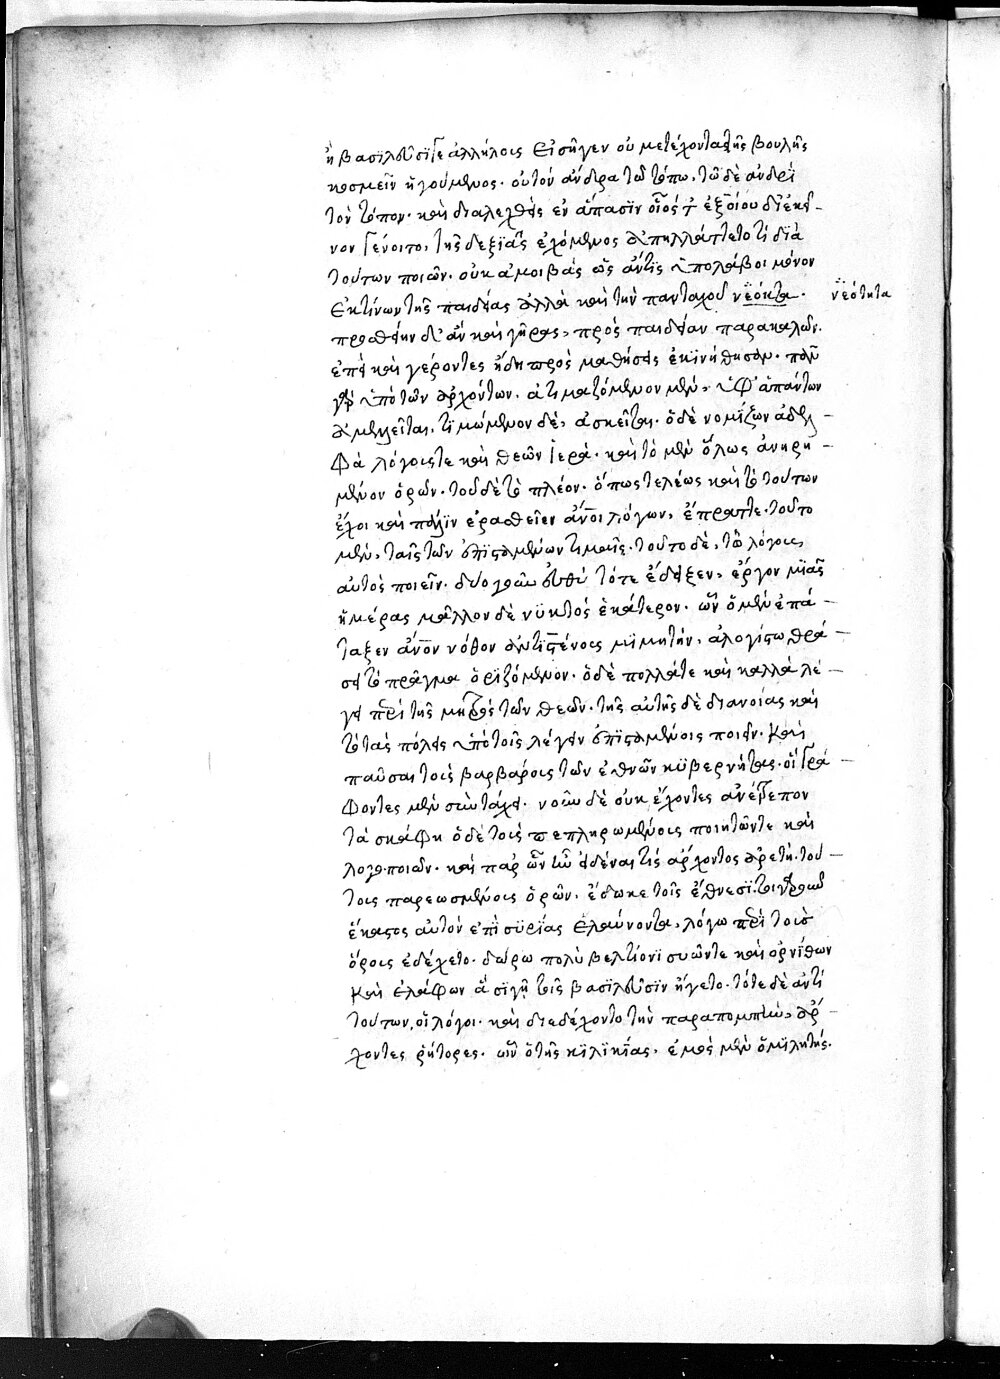 ἢ βασιλεῦσί γε ἀλλήλοις εἰσῆγεν οὐ μετέχοντα τῆς βουλῆς
κοσμεῖν ἡγούμενος. οὐ τὸν ἄνδρα τῶ τόπω. τῶ δὲ ἀνδρὶ
τὸν τόπον. καὶ διαλεχθεὶς ἐν ἅπασϊν οἷος τ ἐξ οἵου δι' ἐκεῖ-
νον γένοιτο. τῆς δεξιᾶς ἑλόμενος ἀπηλλάττετο τί διὰ
τούτων ποιῶν. οὐκ ἀμοιβὰς ὡς ἄν τις ὑπολάβοι μόνον
ἐκτίνων τῆς παιδείας ἀλλὰ καὶ τὴν πανταχοῦ νεόκτα. νεότητα
προσθείην δ' ἂν καὶ γῆρας, πρὸς παιδείαν παρακαλῶν.
ἐπεὶ καὶ γέροντες ἤδη πρὸς μαθήσεις ἐκινήθησαν. πᾶν
γὰρ ὑπὸ τῶν ἀρχόντων. ἀτιμαζόμενον μὲν, ὑφ' ἁπάντων
ἀμελεῖται. τιμώμενον δὲ, ἀσκεῖται. ὁ δὲ νομίζων ἀδελ-
φὰ λόγους τε καὶ θεῶν ἱερὰ. καὶ τὸ μὲν ὅλως ἀνῃρη-
μένον ὁρῶν. τοῦ δὲ τὸ πλέον. ὅπως τελέως καὶ τὸ τούτων
ἔχοι καὶ πάλιν ἐρασθεῖεν ἄνοι λόγων, ἔπραττε. τοῦτο
μὲν, ταῖς τῶν ἐπισταμένων τιμαῖς. τοῦτο δὲ, τῶ λόγους
αὐτὸς ποιεῖν. δύο γοῦν εὐθὺ τότε ἔδειξεν, ἔργον μιᾶς
ἡμέρας μᾶλλον δὲ νυκτὸς ἑκάτερον. ὧν ὁ μὲν ἐπά-
ταξεν ἄνον νόθον ἀντισθένους μιμητὴν, ἀλογίστω θρά-
σει τὸ πρᾶγμα ὁριζόμενον. ὁ δὲ πολλά τε καὶ καλλὰ λέ-
γει περὶ τῆς μητρὸς τῶν θεῶν. τῆς αὐτῆς δὲ διανοίας καὶ
τὸ τὰς πόλεις ὑπὸ τοῖς λέγειν ἐπισταμένοις ποιεῖν. καὶ
παῦσαι τοὺς βαρβάρους τῶν ἐθνῶν κυβερνήτας. οἱ γρά-
φοντες μὲν σὺν τάχει. νοῦν δὲ οὐκ ἔχοντες ἀνέτρεπον
τὰ σκάφη ὁ δὲ τοὺς πεπληρωμένους ποιητῶν τε καὶ
λογοποιῶν. καὶ παρ' ὧν ἦν εἰδέναι τίς ἄρχοντος ἀρετὴ. τού-
τους παρεωσμένους ὁρῶν. ἔδωκε τοῖς ἔθνεσϊ. τοιγαροῦν
ἕκαστος αὐτὸν ἐπὶ συρίας ἐλαύνοντα, λόγω περὶ τοὺς
ὅρους ἐδέχετο. δώρω πολὺ βελτίονι συῶν τε καὶ ὀρνίθων
καὶ ἐλάφων ἃ σιγῆ τοῖς βασιλεῦσϊν ἤγετο. τότε δὲ ἀντὶ
τούτων, οἱ λόγοι. καὶ διεδέχοντο τὴν παραπομπὴν, ἄρ-
χοντες ῥήτορες. ὧν ὁ τῆς κιλικίας, ἐμὸς μὲν ὁμιλητής.